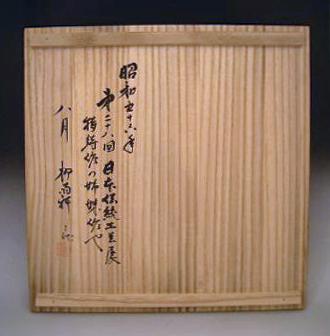 昭和五十六年
第二十八回 日本伝統工芸展
 作の姉妹作や
八月 柳